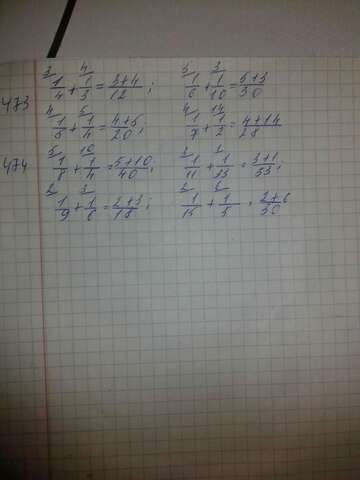 473
3 4 5 3
1/4 + 1/3 = 3+4/12 ; 1/6 + 1/10 = 5+3/30
4 5 4 14
1/5 + 1/4 = 4+5/20 ; 1/7 + 1/2 = 4+14/28
474
5 10 3 1
1/8 + 1/4 = 5+10/40 ; 1/11 + 1/33 = 3+1/33 ;
2 3 2 6
1/9 + 1/6 = 2+3/18 ; 1/15 + 1/5 = 2+6/30